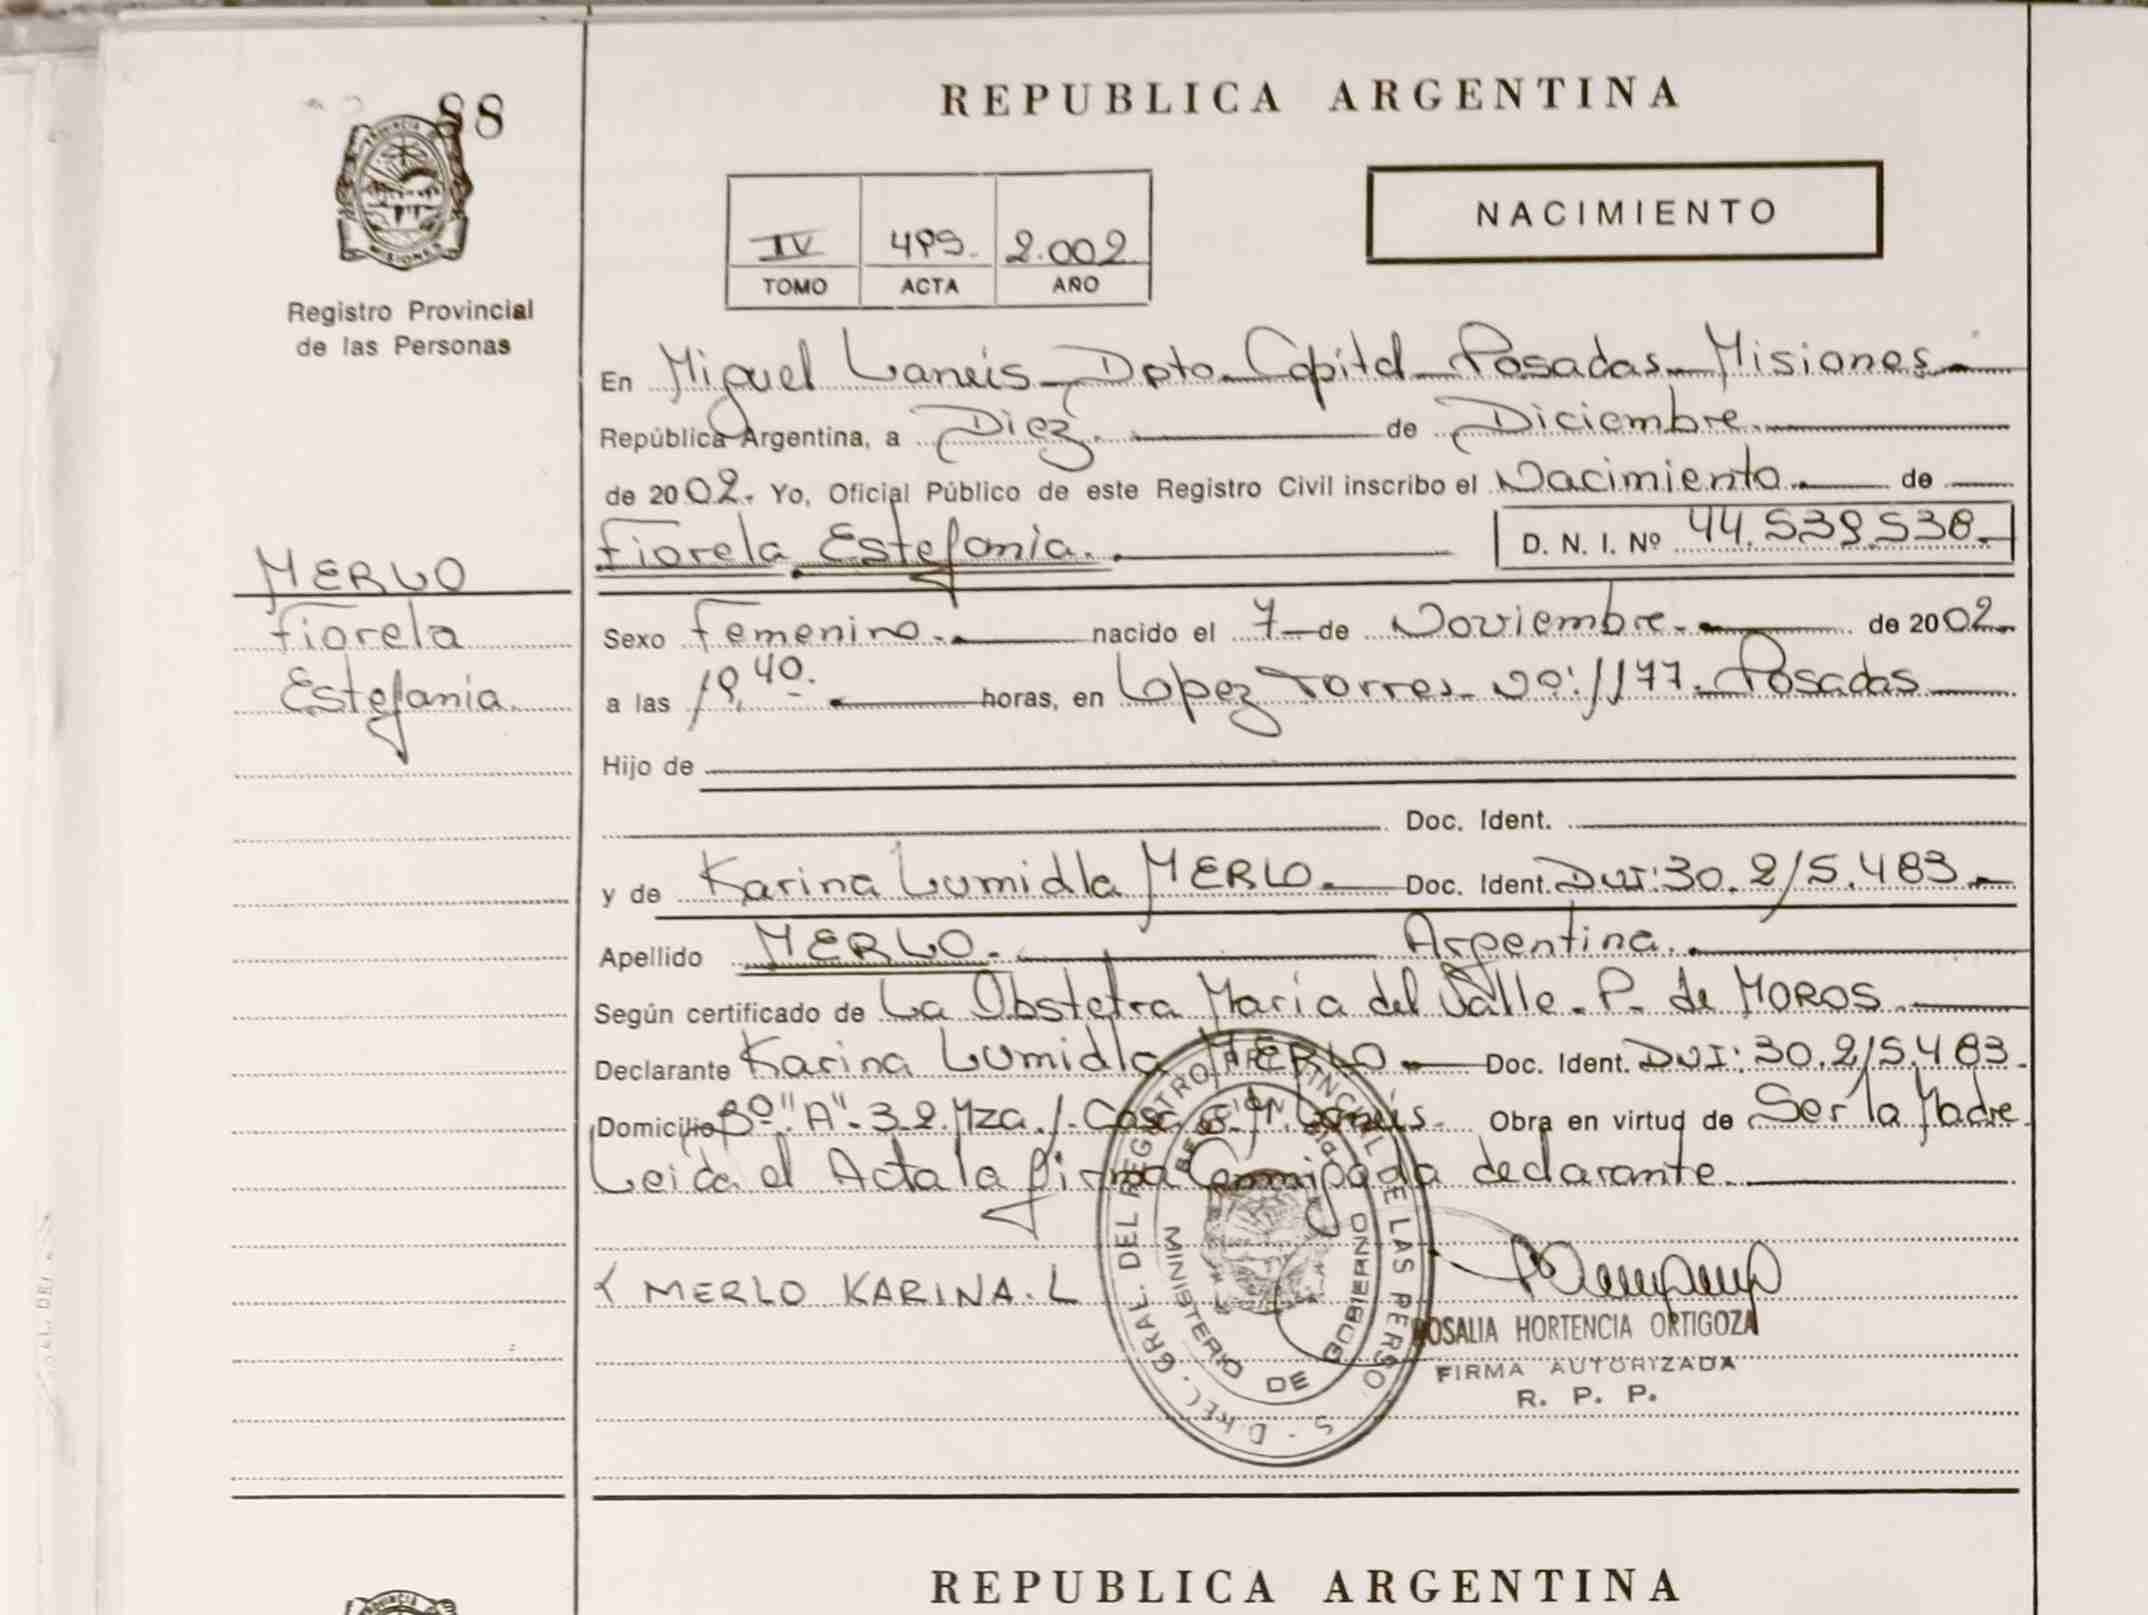 88
REPUBLICA ARGENTINA
NACIMIENTO
IV 499. 2.002
TOMO ACTA AÑO
Registro Provincial
de las Personas
En Miguel Lanús Dpto Capital Posadas Misiones
República Argentina, a Diez. de Diciembre
de 2002. Yo, Oficial Público de este Registro Civil inscribo el Nacimiento de
Fiorela Estefania. D. N. I. Nº 44.539.538.
MERLO
Fiorela
Estefania.
Sexo Femenino. nacido el 7 de Noviembre. de 2002.
a las 19,40. horas, en Lopez Torres nº: 1177. Posadas
Hijo de
Doc. Ident.
y de Karina Lumidla MERLO. Doc. Ident. DNI: 30.215.483
Apellido MERLO. Argentina.
Según certificado de La Obstetra Maria del Valle. P. de MOROS
Declarante Karina Lumidla MERLO. Doc. Ident. DNI: 30.215.483.
Domicilio Bº "A". 32. Mza. J. Casa 6. M. Lanús. Obra en virtud de Ser la Madre
Leida el Acta la firma Conmigo la declarante.
MERLO KARINA. L
DEL REGISTRO PROVINCIAL DE LAS PERSO
MINISTERIO DE GOBIERNO
ROSALIA HORTENCIA ORTIGOZA
FIRMA AUTORIZADA
R. P. P.
REPUBLICA ARGENTINA